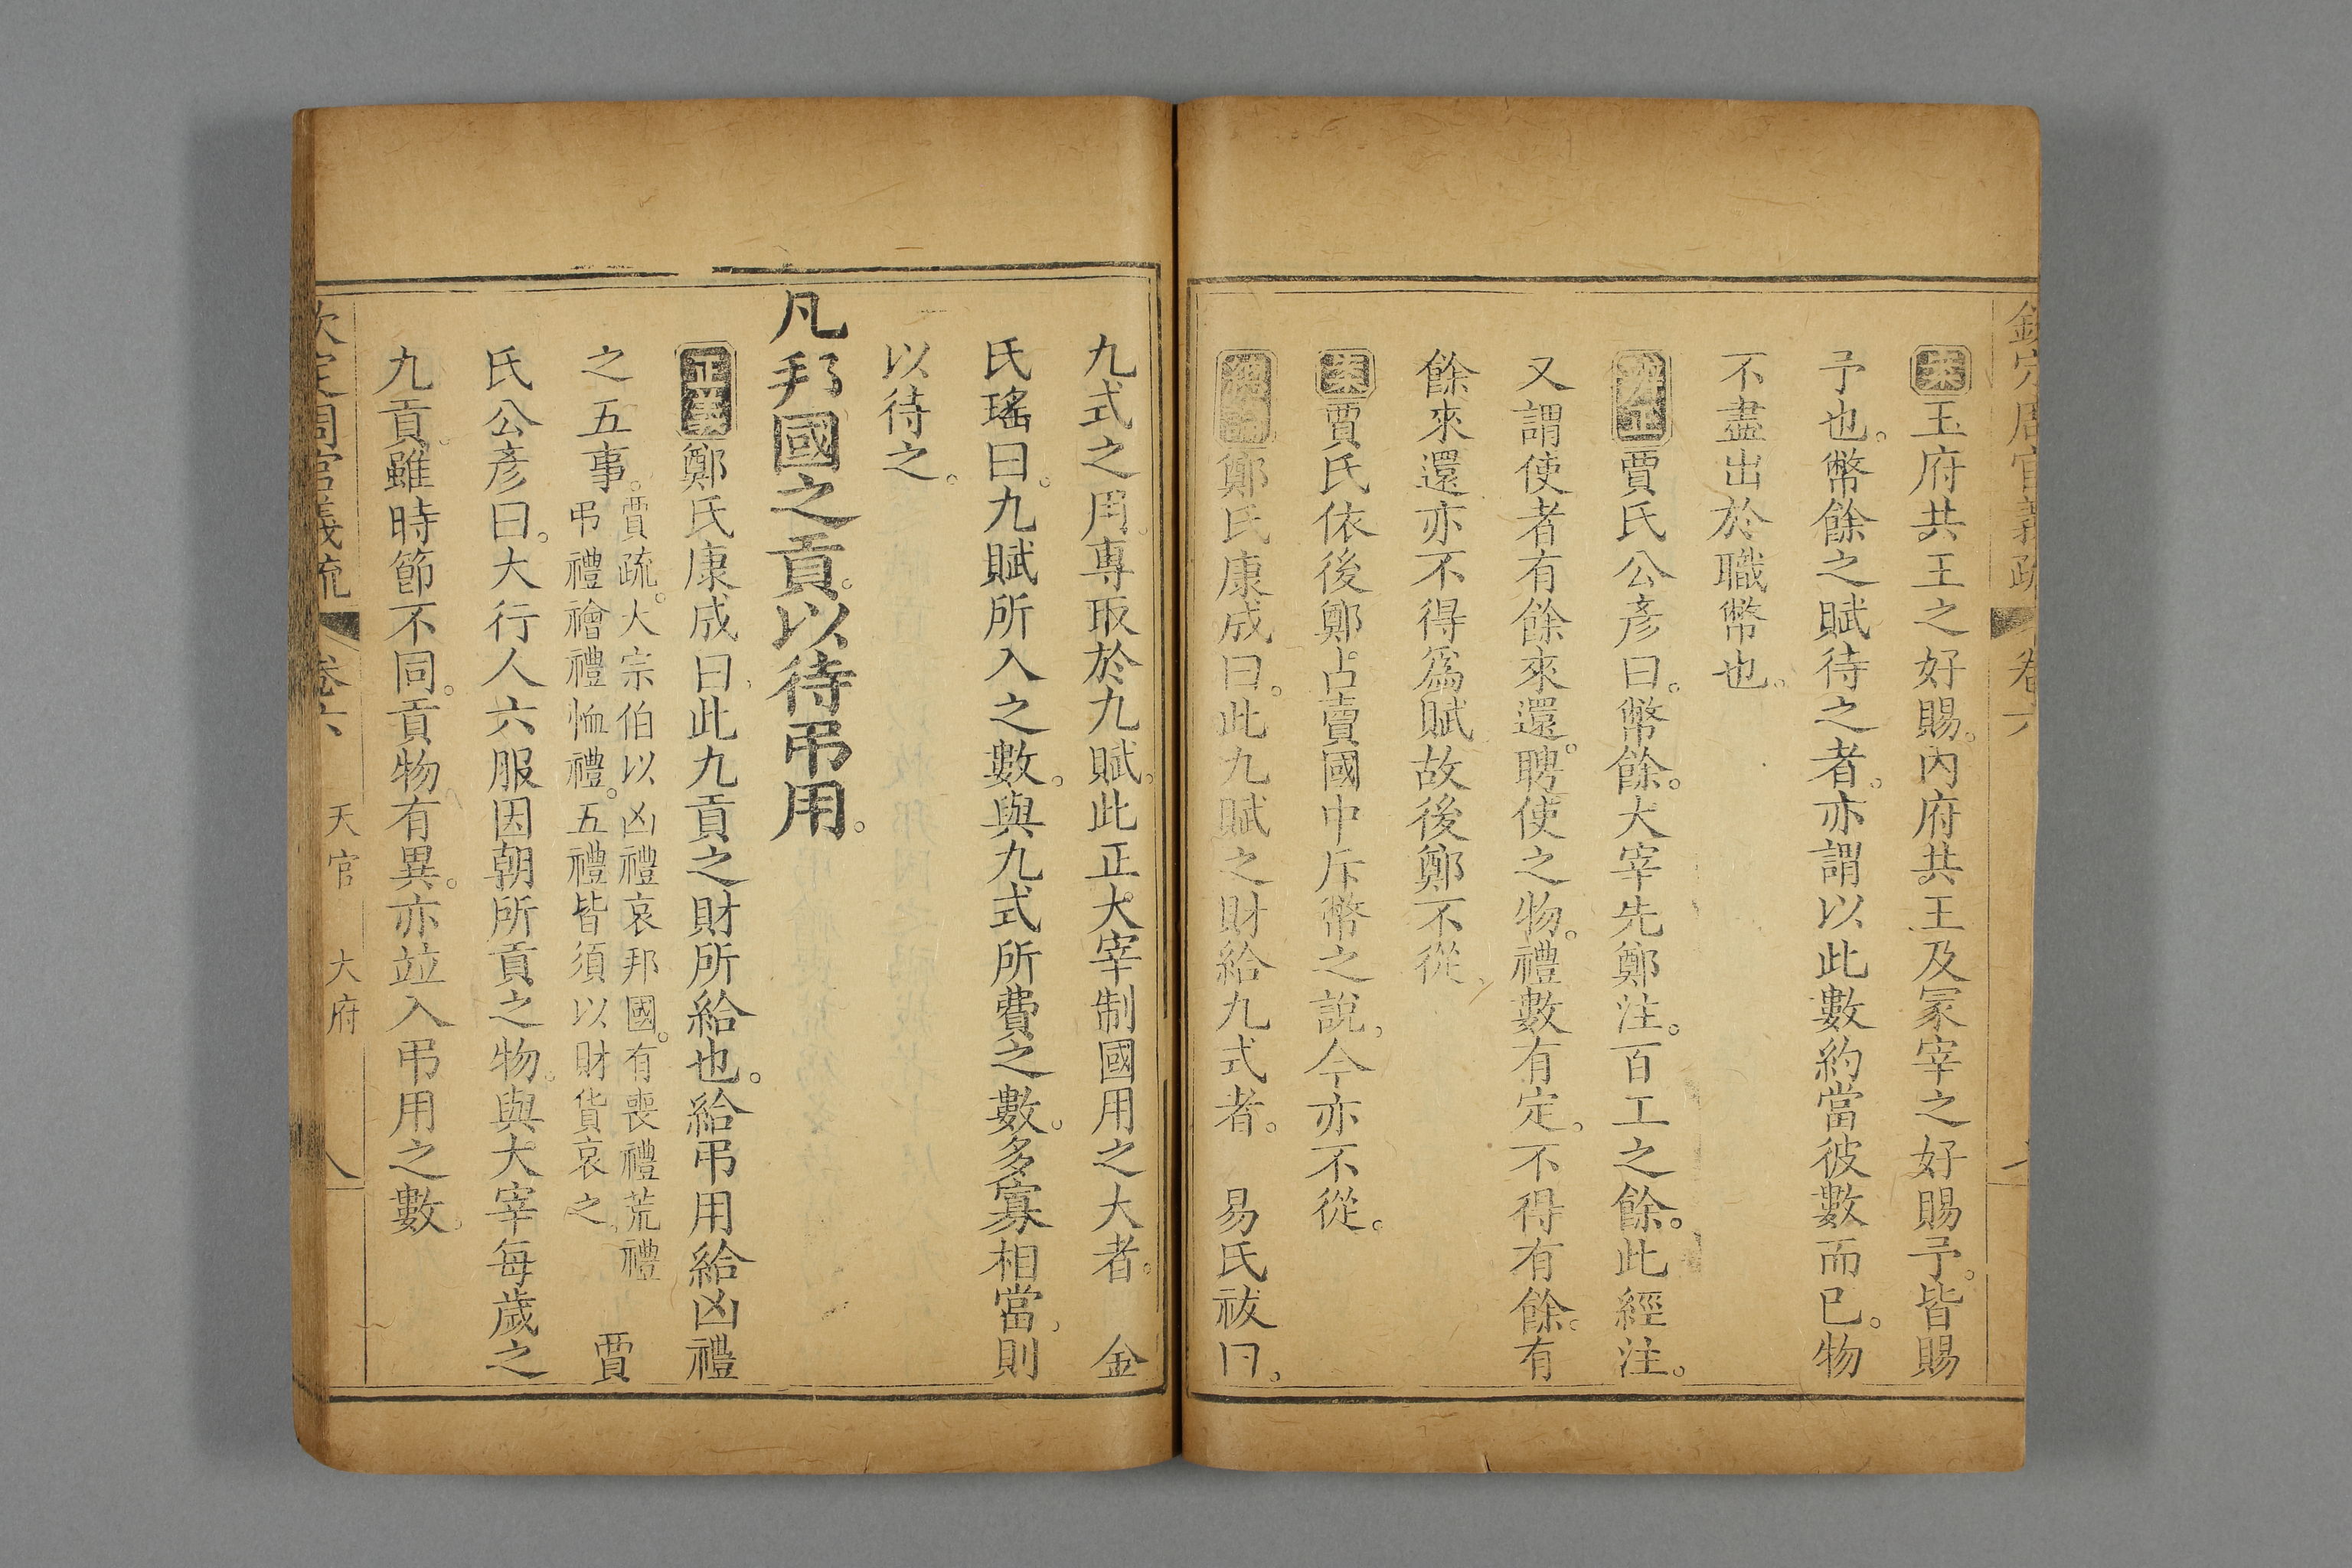 欽定周官義疏 卷六
案玉府共王之好賜。内府共王及冢宰之好賜予。皆賜
予也。幣餘之賦待之者。亦謂以此數約當彼數而已。物
不盡出於職幣也。
辨正賈氏公彥曰。幣餘。大宰先鄭注。百工之餘。此經注。
又謂使者有餘來還。聘使之物。禮數有定。不得有餘。有
餘來還亦不得爲賦故後鄭不從
案賈氏依後鄭。占賣國中斥幣之說,今亦不從。
總論鄭氏康成曰。此九賦之財給九式者。 易氏祓曰。
九式之用。專取於九賦。此正大宰制國用之大者。 金
氏瑤曰。九賦所入之數。與九式所費之數。多寡相當,則
以待之。
凡邦國之貢。以待弔用。
正義鄭氏康成曰,此九貢之財所給也。給弔用給凶禮
之五事。賈疏。大宗伯以凶禮哀邦國。有喪禮荒禮
弔禮禬禮恤禮。五禮皆須以財貨哀之。 賈
氏公彥曰。大行人六服因朝所貢之物。與大宰每歲之
九貢。雖時節不同。貢物有異。亦竝入弔用之數。
欽定周官義疏 卷六 天官 大府 八